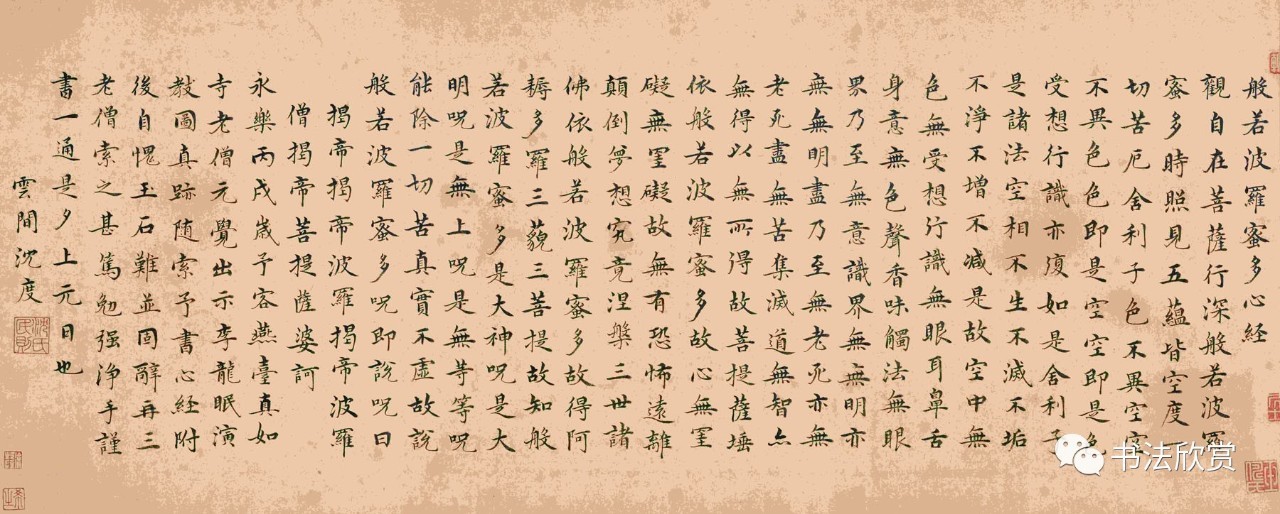 般若波羅蜜多心經
觀自在菩薩行深般若波羅
蜜多時照見五蘊皆空度一
切苦厄舍利子色不異空空
不異色色即是空空即是色
受想行識亦復如是舍利子
是諸法空相不生不滅不垢
不淨不增不減是故空中無
色無受想行識無眼耳鼻舌
身意無色聲香味觸法無眼
界乃至無意識界無無明亦
無無明盡乃至無老死亦無
老死盡無苦集滅道無智亦
無得以無所得故菩提薩埵
依般若波羅蜜多故心無罣
礙無罣礙故無有恐怖遠離
顛倒夢想究竟涅槃三世諸
佛依般若波羅蜜多故得阿
耨多羅三藐三菩提故知般
若波羅蜜多是大神呪是大
明呪是無上呪是無等等呪
能除一切苦真實不虛故說
般若波羅蜜多呪即說呪曰
揭帝揭帝波羅揭帝波羅
僧揭帝菩提薩婆訶
永樂丙戌歲予客燕臺真如
寺老僧元覺出示李龍眠演
教圖真跡随索予書心經附
後自愧玉石難並固辭再三
老僧索之甚篤勉强淨手謹
書一通是夕上元日也
雲間沈度
书法欣赏